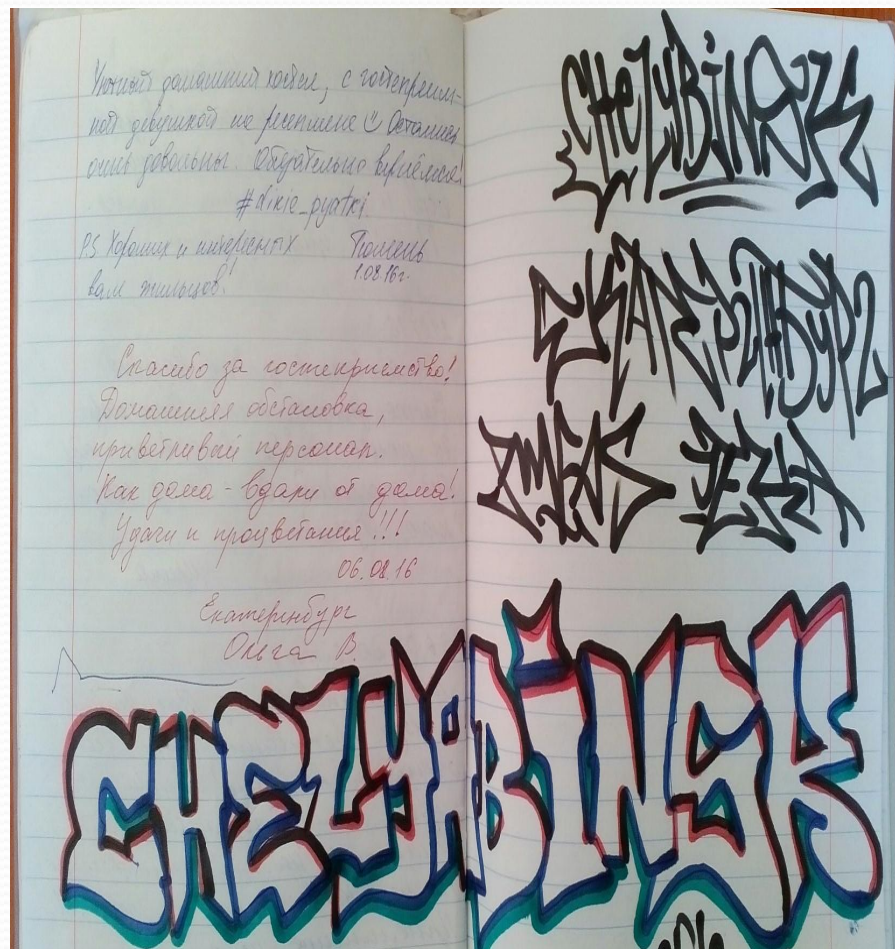 Уютный домашний хостел, с гостеприим-
ной девушкой на ресепшене Остались
очень довольны. Обязательно вернёмся!
#dikie_pyatki
PS Хороших и интересных
вам жильцов!
Тюмень
1.08.16г.
Спасибо за гостеприимство!
Домашняя обстановка,
приветливый персонал.
Как дома - вдали от дома!
Удачи и процветания!!!
06.08.16
Екатеринбург
Ольга В.
CHELYBINSK
ЕКАТЕРИНБУРГ
CHELYABINSK